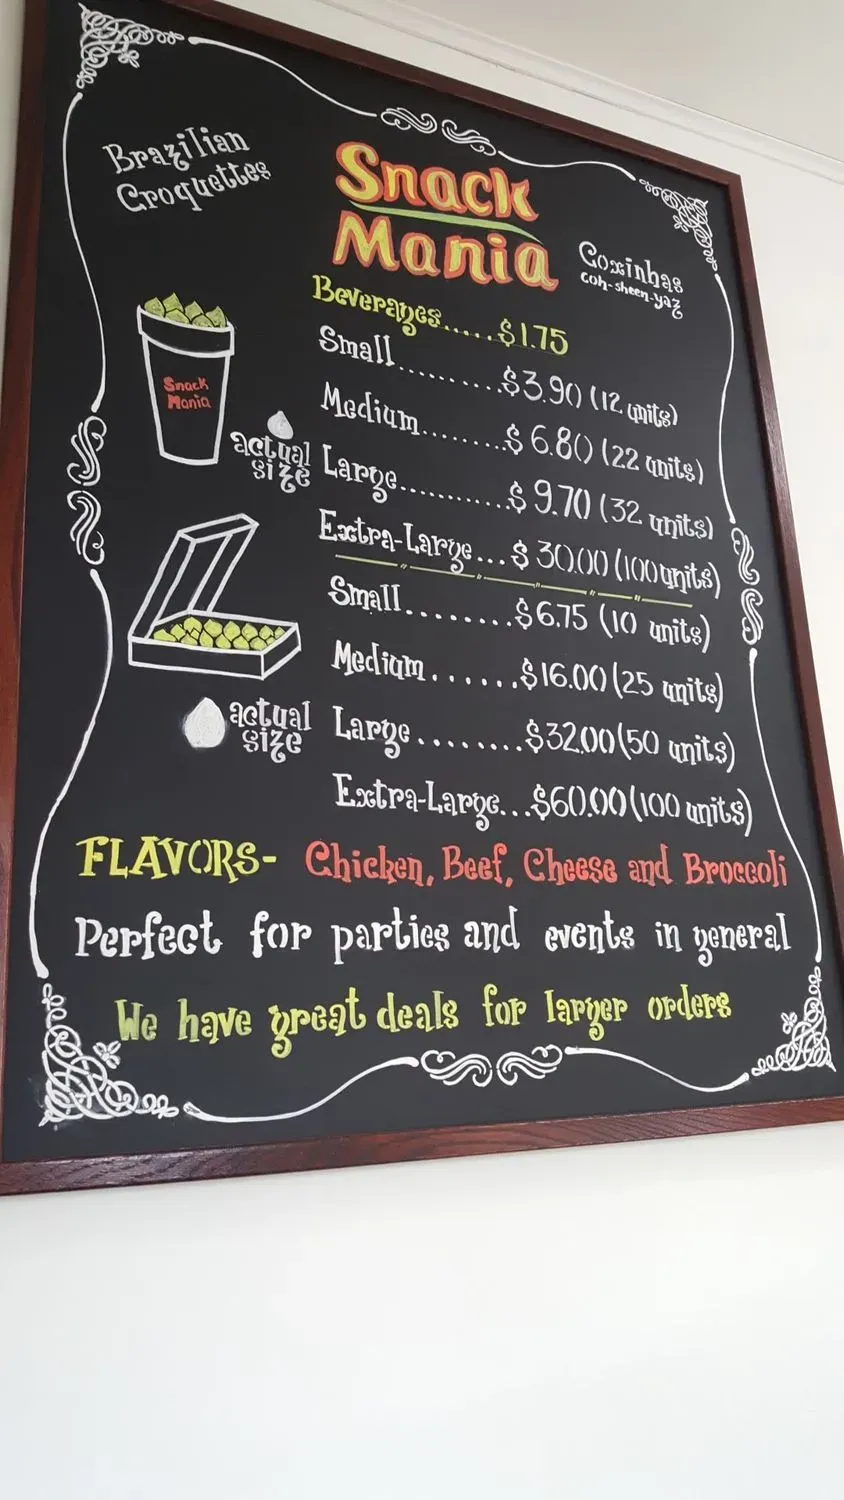 Brazilian
Croquettes
Snack
Mania
Coxinhas
coh-sheen-yaz
Beverages.....$1.75
Small...........$3.90 (12 units)
Medium........$6.80 (22 units)
Large...........$9.70 (32 units)
Extra-Large...$30.00 (100 units)
Snack
Mania
actual
size
Small........$6.75 (10 units)
Medium.......$16.00 (25 units)
Large........$32.00 (50 units)
Extra-Large...$60.00 (100 units)
actual
size
FLAVORS- Chicken, Beef, Cheese and Broccoli
Perfect for parties and events in general
We have great deals for larger orders